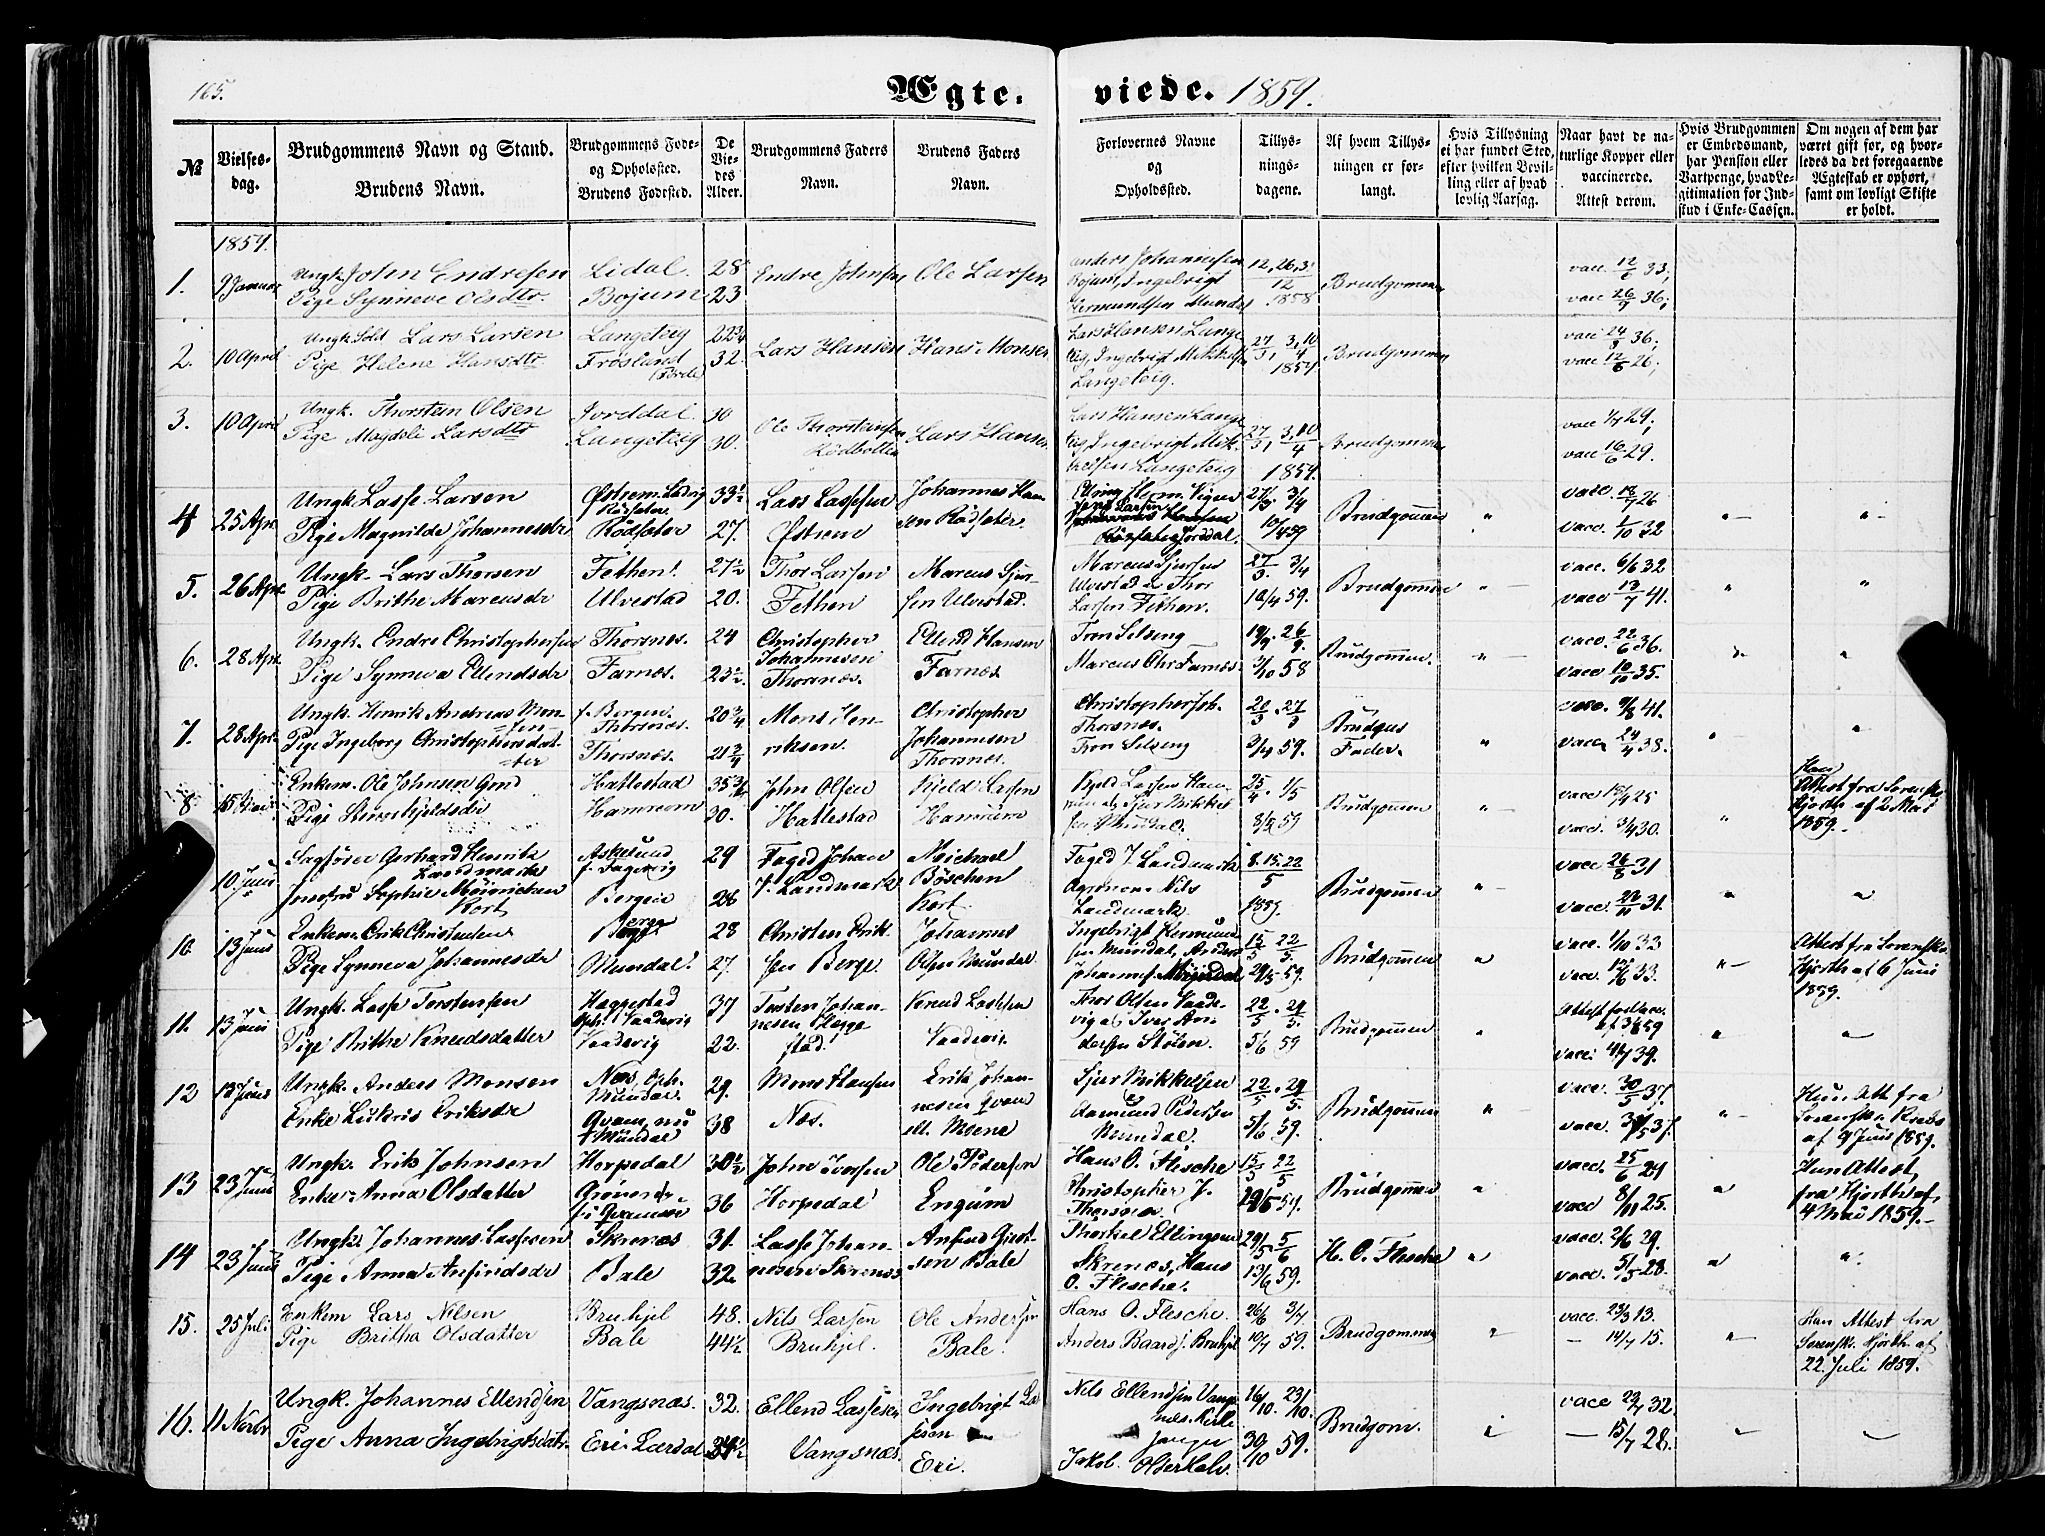 165.
Ægte-viede. 1859.
№
Vielses-
dag.
Brudgommens Navn og Stand.
Brudens Navn.
Brudgommens Føde-
og Opholdssted.
Brudens Fødested.
De
Vie-
des
Alder.
Brudgommens Faders
Navn.
Brudens Faders
Navn.
Forlovernes Navne
og
Opholdssted.
Tillys-
nings-
dagene.
Af hvem Tillys-
ningen er for-
langt.
Hvis Tillysning
ei har fundet Sted,
efter hvilken Bevil-
ling eller af hvad
lovlig Aarsag.
Naar havt de na-
turlige Kopper eller
vaccinerede.
Attest derom.
Hvis Brudgommen
er Embedsmand,
har Pension eller
Vartpenge, hvad Le-
gitimation for Ind-
skud i Enke-Cassen.
Om nogen af dem har
været gift før, og hvor-
ledes da det foregaaende
Ægteskab er ophørt,
samt om lovligt Skifte
er holdt.
1859.
1. 9 Januar Ungk. John Endresen Lidal. 28 Endre Johnsen Ole Larsen Anders Johannesen 12, 26, 31 Brudgommen vacc 12/6 33;
Pige Synneve Olsdtr. Bojum 23 Bojum, Ingebrigt 12 vacc 26/9 36;
Hermundsen Mundal 1858
2. 10 April Ungk. Sold Lars Larsen Langeteig 22 3/4 Lars Hansen Hans Monsen Lars Hansen Lange- 27/3, 3, 10/4 Brudgommen vacc 24/9 36;
Pige Helene Hansdtr Frøsland 32. teig, Ingebrigt Mikkelsen 1859 vacc 12/6 26;
(Førde) Langeteig.
3. 10 April Ungk. Thorstein Olsen Jorddal 30 Ole Thorsteinsen Lars Hansen Lars Hansen Lange- 27/3, 3, 10/4 Brudgommen vacc 1/7 29;
Pige Magdeli Larsdtr Langeteig 30. Rødbotten teig, Ingebrigt Mik- vacc 16/6 29.
kelsen Langeteig 1859.
4 25 Apr. Ungk. Lasse Larsen Østrem 33 1/2 Lars Lassesen Johannes Han- 27/3 3/4 Brudgommen " vacc. 26 " "
Pige Magnilde Johannesdr Rødseter 27. Østrem sen Rødseter. 10/4 59 vacc. 1/10 32
Jorddal.
5. 26 Apr. Ungk. Lars Thorsen Fethen. 27 1/2 Thor Larsen Marcus Sjur- Marcus Sjursen 27/3. 3/4 Brudgommen " vacc. 6/6 32 " "
Pige Brithe Marcusdr Ulvestad 20. Fethen sen Ulvestad. Ulvestad & Thor 10/4 59. vacc 13/7 41.
Larsen Fethen.
6. 28 Apr. Ungk. Endre Christophersen Thorsnes. 24 Christopher Ellend Hansen Tron Selseng 19/9. 26/9. Brudgommen. " vacc. 22/6 36. "
Pige Synneva Ellendsdr Farnes. 23 1/2. Johannesen Farnes Marcus Chr Farnes. 3/10 58 vacc 10/10 35.
Thorsnes.
7. 28 Apr. Ungk. Henrik Andreas Mon- f. Bergen. 20 3/4 Mons Hen- Christopher Christopher Joh. 20/3. 27/3 Brudgus vacc. 9/8 41. " "
sen Thorsnes.
Pige Ingeborg Christophersdat- Thorsnes. 21 3/4 riksen. Johannesen Thorsnes. 3/4 59. Fader. " vacc. 24/4 38.
ter Thorsnes. Tron Selseng
8 15 Enkem. Ole Johnsen Hattestad 35 3/4 John Olsen Kjeld Larsen Kjeld Larsen Ham- 25/4. 1/5 Brudgommen " vacc 18/9 25 " Attest fra Sorensk.
Pige Kjeldsdr Hamrem 30. Hattestad Hamrem & Sjur Mikkel- 8/5 59 vacc. 3/4 30. Hjorth af 2 Mai
sen Mundal. 1859.
10 Juni Sagfører Gerhard Henrik Askesund 29 Foged Johan Michael Foged J. Landmark 8. 15. 22/5 Brudgommen " vacc. 26/8 31 " "
Landmark
Jomfru Sophie Kort Bergen 26 J. Landmark Bøschen Agronom Nils 1859. vacc. 20/11 31.
Kort. Landmark
10. 13 Juni Enkem. Erik Christensen Berge 28 Christen Erik- Johannes Ingebrigt Hermund- 15/5 22/5. Brudgommen " vacc. 1/10 33 " Attest fra Sorensk.
Pige Synneva Johannesdr Mundal. 27. sen Berge Olsen Mundal sen Mundal, Anders 29/5 59. vacc. 12/6 33. Hjorth af 6 Juni
Johannes. 1859.
11. 13 Juni Ungk. Lasse Torstensen Heggestad 37 Torsten Johan- Knud Lassesen Thor Olsen Vaade- 22/5. 29/5. Brudgommen " Attest for vacc. " "
Pige Brithe Knudsdatter Vaadevig 22. nesen Hegge- Vaadevig. vig & Iver An- 5/6 59 af 59
stad. dersen Stølen. vacc. 39.
12 13 Juni Ungk. Anders Monsen Næs, oph. 29. Mons Hansen Erik Johan- Sjur Mikkelsen 22/5. 29/5. Brudgommen " vacc. 30/5 37. " Hun. Att. fra
Mundal.
Enke Lukris Eriksdr Qvam, nu 38 Næs. nesen Qvam & Amund Pedersen 5/6 59. vacc. 37. Sorensk. Krebs
i Mundal ell. Moene Mundal. af 9 Juni 1859.
13 23 Juni Ungk. Erik Johnsen Horpedal 30 1/2 John Iversen Ole Pedersen Hans O. Flesche 15/5 22/5 Brudgommen " vacc. 25/6 29 " Hun Attest
Enke Anna Olsdatter 36 Horpedal Engum Christopher J. 29/5 59. vacc 8/11 25. fra Hjorth af
Thorsnes. 4 Mai 1859.
14 23 Juni Ungk. Johannes Lassesen Skrenæs 31. Lasse Johan- Anfind Thorkel Ellingsen 29/5. 5/6 H. O. Flesche " vacc. 2/6 29. " "
Pige Anna Anfindsdr Bale 32. nesen Skrenæs sen Bale Skrenæs, Hans 13/6 59. vacc. 5/5 28.
O. Flesche.
15. 25 Juli Enkem Lars Nilsen Bruhjel 48. Nils Larsen Ole Andersen Hans O. Flesche 26/6 3/7 Brudgommen " vacc. 23/3 13. " Han Attest fra
Pige Britha Olsdatter Bale 44 1/2 Bruhjel. Bale. Anders Baards. Bruhjel 10/7 59. — 14/7 15. Sorensk. Hjorth af
22. Juli 1859.
16. 11 Novbr Ungk. Johannes Ellendsen Vangsnæs. 32. Ellend Lassesen Ingebrigt Las- Nils Ellendsen Vangs- 16/10. 23/10. Brudgom. vacc 32.
Pige Anna Ingebrigtsdatr. Eri Lærdal 34 1/2 Vangsnæs. sen næs. 30/10 59. — 15/7 28.
Eri. Jakob